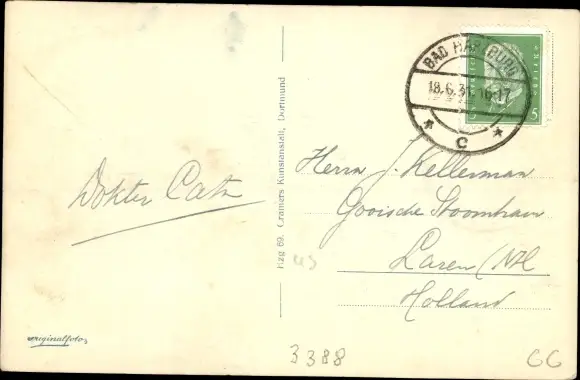 BAD HARZBURG
18.6.31.16-17
* C *
5
Dokter Cats
Herrn J. Kellerman
Gooische Stoomtram
Laren (NH
Holland
Hzg 69. Cramers Kunstanstalt, Dortmund
originalfoto
3388
GG